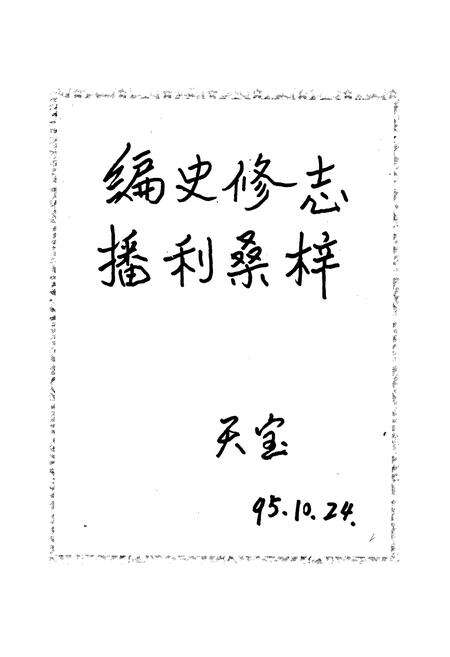 编史修志
播利桑梓
天宝
95.10.24.